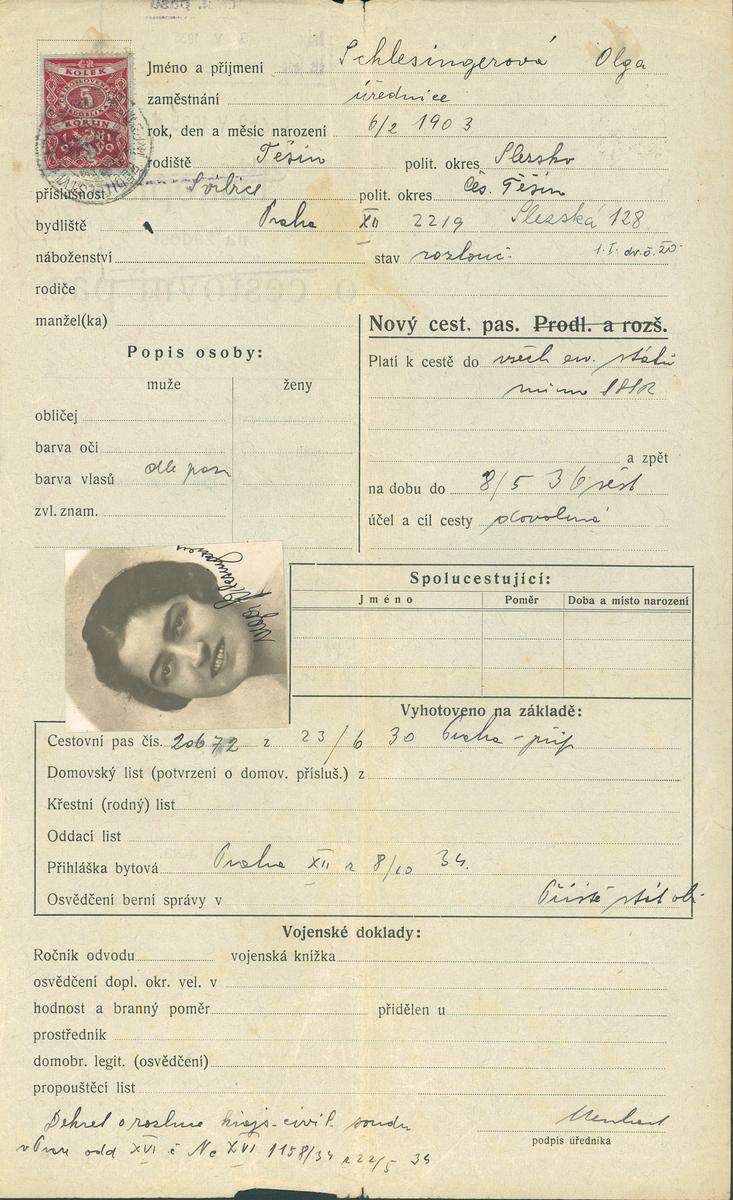 ČR
KOLEK
5
KORUN
Jméno a příjmení Schlesingerová Olga
zaměstnání úřednice
rok, den a měsíc narození 6/2 1903
rodiště Těšín polit. okres Slezsko
příslušnost polit. okres Čes. Těšín
bydliště Praha XII 2219 Slezská 128
náboženství stav rozlouč. 1.I. dv.č. 20.
rodiče
manžel(ka)
Nový cest. pas. Prodl. a rozš.
Platí k cestě do všech ev. států
mimo
a zpět
na dobu do 8/5 36
účel a cíl cesty dovolená
Popis osoby:
muže ženy
obličej
barva očí
barva vlasů dle pasu
zvl. znam.
Olga Schlesingerová
Spolucestující:
Jméno Poměr Doba a místo narození
Vyhotoveno na základě:
Cestovní pas čís. 20672 z 23/6 30 Praha -
Domovský list (potvrzení o domov. přísluš.) z
Křestní (rodný) list
Oddací list
Přihláška bytová Praha XII z 8/10 34.
Osvědčení berní správy v
Příště stát. ob.
Vojenské doklady:
Ročník odvodu vojenská knížka
osvědčení dopl. okr. vel. v
hodnost a branný poměr přidělen u
prostředník
domobr. legit. (osvědčení)
propouštěcí list
Dekret o rozluce krajs. civil. soudu
v Praze odd XVI č Nc XVI 1158/34 z 22/5 34
podpis úředníka